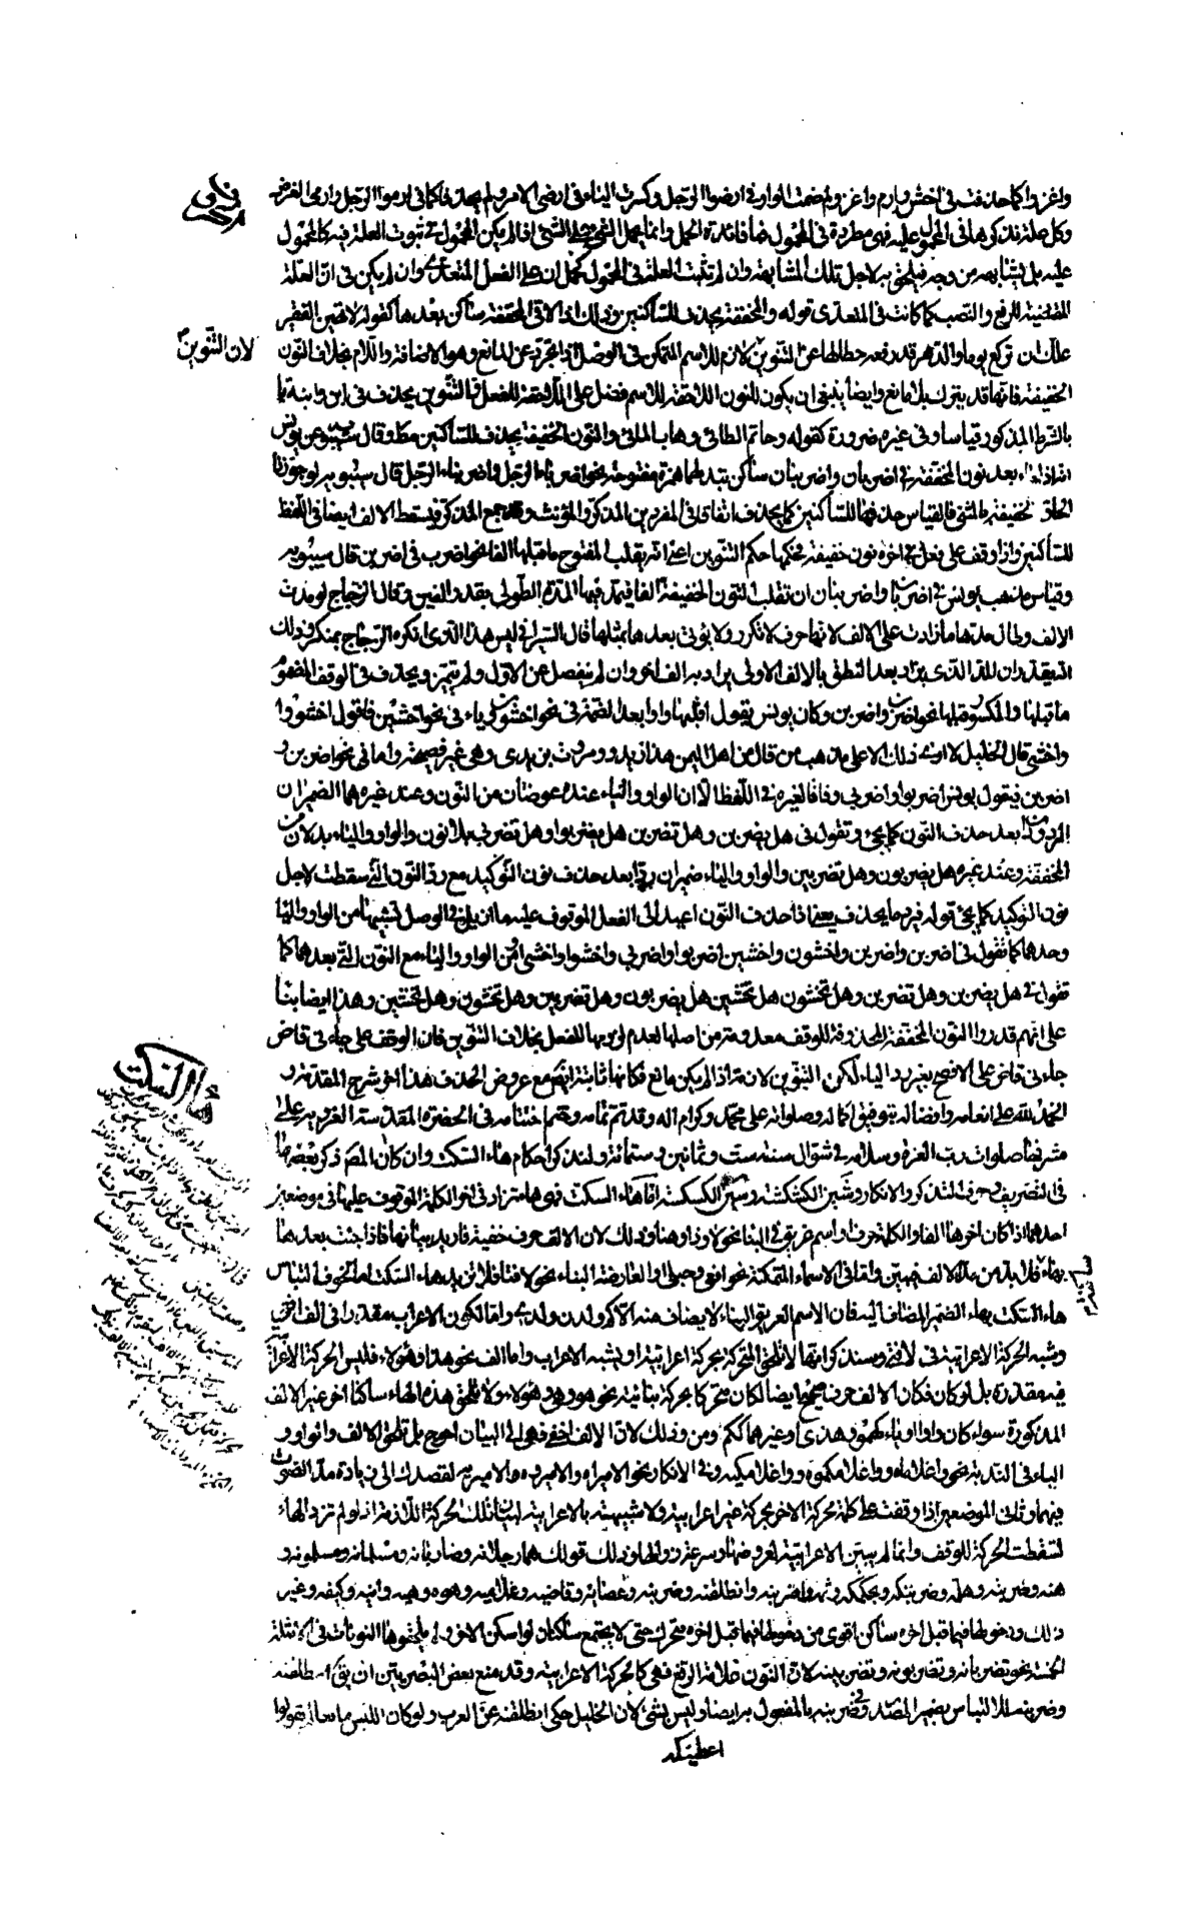 واغزوا كما حذفت في اخش وارم واغز ولم ضمت الواو في ارضوا الرجل وكسرت الياء في ارضي الامر ولم يحذفا كما في ارموا الرجل وارمي الغرض
وكل علة نذكرها في المحمول عليه فهي مطردة في المحمول فما فائدة الحمل وانما يحمل الشيء على الشيء اذا لم يكن المحمول في ثبوت العلة فيه كالمحمول
عليه بل يشابهه من وجه فيلحق به لاجل تلك المشابهة وان لم تثبت العلة في المحمول كحمل ان على الفعل المتعدي وان لم يكن في ان العلة
المقتضية للرفع والنصب كما كانت في المتعدي قوله والمخففة يحذف للساكنين وذلك اذا لاقى المخففة ساكن بعدها كقوله لا تهين الفقير
علك ان تركع يوما والدهر قد رفعه حطا لها عن التنوين لازم للاسم المتمكن في الوصل اذا تجرد عن المانع وهو الاضافة واللام بخلاف النون
لان التنوين
الخفيفة فانها قد يترك بلا مانع وايضا ينبغي ان يكون للنون اللاحقة للاسم فضل على اللاحقة للفعل فالتنوين يحذف في ابن وابنة
بالشرط المذكور قياسا وفي غيره ضرورة كقوله وحاتم الطائي وهاب المائي والنون الخفيفة يحذف للساكنين مطلقا وقال سيبويه عن يونس
اذا جاء بعد نون المخففة في اضربان واضربنان ساكن تبدلها همزة مفتوحة نحو اضرباء الرجل واضربناء الرجل قال سيبويه لو جوزنا
الحاق الخفيفة بالمثنى فالقياس حذفها للساكنين كما يحذف اتفاقا في المفردين المذكر والمؤنث وجمع المذكر فيسقط الالف ايضا في اللفظ
للساكنين واذا وقف على فعل في اخره نون خفيفة فحكمها حكم التنوين اعني انه يقلب المفتوح ما قبلها الفا نحو اضربا في اضربن قال سيبويه
وقياس مذهب يونس في اضربان واضربنان ان تقلب النون الخفيفة الفا فيمد فيهما المدة الطولى بقدر الفين وقال الزجاج لو مدت
الالف وطال مدتها ما زادت على الالف لانها حرف لا تكرر ولا يؤتى بعدها بمثلها قال السيرافي ليس هذا الذي انكره الزجاج بمنكر وذلك
انه يقدر ان المد الذي يزاد بعد النطق بالالف الاولى يراد به الف اخرى وان لم ينفصل عن الاول ولم يتميز ويحذف في الوقف المضموم
ما قبلها والمكسور قبلها نحو اضربن واضربن وكان يونس يقول اقلبها واوا بعد الضمة في نحو اخشون وياء في نحو اخشين فاقول اخشووا
واخشيي قال الخليل لا ارى ذلك الا على مذهب من قال من اهل اليمن هذا زيدو ومررت بزيدي وهي غير فصيحة واما في نحو اضربن و
اضربن فيقول يونس اضربوا واضربي وفاقا لغيره في اللفظ الا ان الواو والياء عنده عوضان من النون وعند غيره هما الضميران
المردودان بعد حذف النون كما يجيء وتقول في هل يضربن وهل تضربن هل يضربوا وهل تضربي بلا نون والواو والياء بدلان من
المخففة وعند غيره هل يضربون وهل تضربين والواو والياء ضميران ردا بعد حذف نون التوكيد مع رد النون التي سقطت لاجل
نون التوكيد كما يجيء قوله فيرد ما يحذف يعني اذا حذف النون اعيد الى الفعل الموقوف عليه ما ازيل في الوصل بسببها من الواو والياء
وحدهما كما تقول في اضربن واضربن واخشون واخشين اضربوا واضربي واخشوا واخشي او من الواو والياء مع النون التي بعدهما كما
تقول في هل يضربن وهل تضربن وهل تخشون هل تخشين هل يضربون وهل تضربين وهل تخشون وهل تخشين وهذا ايضا بناء
على انهم قدروا النون المخففة المحذوفة للوقف معدومة من اصلها لعدم لزومها للفعل بخلاف التنوين فان الوقف على جاءني قاض
جاءني قاض على الافصح بغير رد الياء لكن التنوين لازمة اذا لم يكن مانع فكانها ثابتة ايضا مع عروض الحذف هذا اخر شرح المقدمة و
الحمد لله على انعامه وافضاله بتوفيق اكماله وصلواته على محمد وكرام اله وقد تم تمامه وختم اختتامه في الحضرة المقدسة الغروية على
مشرفها صلوات رب العزة وسلامه في شوال سنة ست وثمانين وستمائة ولنذكر احكام هاء السكت وان كان المص ذكر بعضها
هاء السكت
في التصريف وحرف التذكر والانكار وشين الكشكشة وسين الكسكسة اما هاء السكت فهي هاء تزاد في اخر الكلمة الموقوف عليها في موضعين
احدهما اذا كان اخرها الفا والكلمة حرف او اسم عريق في البناء نحو لا وذا وهنا وذلك لان الالف حرف خفية فاريد بيانها فاذا جئت بعدها
بهاء فلا بد من مد الالف فتبين واما في الاسماء المتمكنة نحو افعى وحبلى او العارضة البناء نحو لا فتى فلا تزيد هاء السكت اما لخوف التباس
هاء السكت بهاء الضمير المضاف اليه فان الاسم العريق البناء لا يضاف منه الا كم ولدن ولدى واما لكون الاعراب مقدرا في الف افعى
وشبه الحركة الاعرابية في لا فتى وسنذكر انها لا تلحق المتحركة بحركة اعرابية او بشبه الاعراب واما الف نحو هذا وهؤلا فليس الحركة الاعرابية
فيه مقدرة بل لو كان مكان الالف حرف صحيح ايضا لكان متحركا بحركة بنائية نحو هو وهي وهؤلاء ولا تلحق هذه الهاء ساكنا اخر غير الالف
المذكورة سواء كان واوا او ياء كهمو وهذي او غيرهما ككم ومن وذلك لان الالف اخفى فهي الى البيان احوج بل تلحق الالف والواو و
الياء في الندبة نحو واغلاماه وواغلامكموه وواغلامكيه وفي الانكار نحو الاميراه والاميروه والاميريه لقصدك الى زيادة مد الصوت
فيهما وثاني الموضعين اذا وقفت على كلمة محركة الاخر بحركة غير اعرابية ولا مشبهة بالاعرابية لبيان تلك الحركة اللازمة اذ لو لم تزد الهاء
لسقطت الحركة للوقف وانما لم يبين الاعرابية لعروضها وسرعة زوالها وذلك قولك هما رجلانه وضاربانه ومسلمانه ومسلمونه و
هنه وضربته وهلمه وضربتكه وبحكمكه وثمه واضربنه وانطلقنه وضربنه وعصايه وقاضيه وغلاميه وهوه وهيه وانيه وكيفه وغير
ذلك ودخولها فيما قبل اخره ساكن اقوى من دخولها فيما قبل اخره متحرك حتى لا يجتمع ساكنان لو اسكن الاخر ولم يلحقوها النونات في الامثلة
الخمسة نحو تضربانه وتضربونه وتضربينه لان النون علامة الرفع فهي كالحركة الاعرابية وقد منع بعض البصريين ان يقال انطلقته
وضربته للالتباس بضمير المصدر وفي ضربته بالمفعول به ايضا وليس بشيء لان الخليل حكى انطلقته عن العرب ولو كان اللبس مانعا لم يقولوا
اعطيتكه